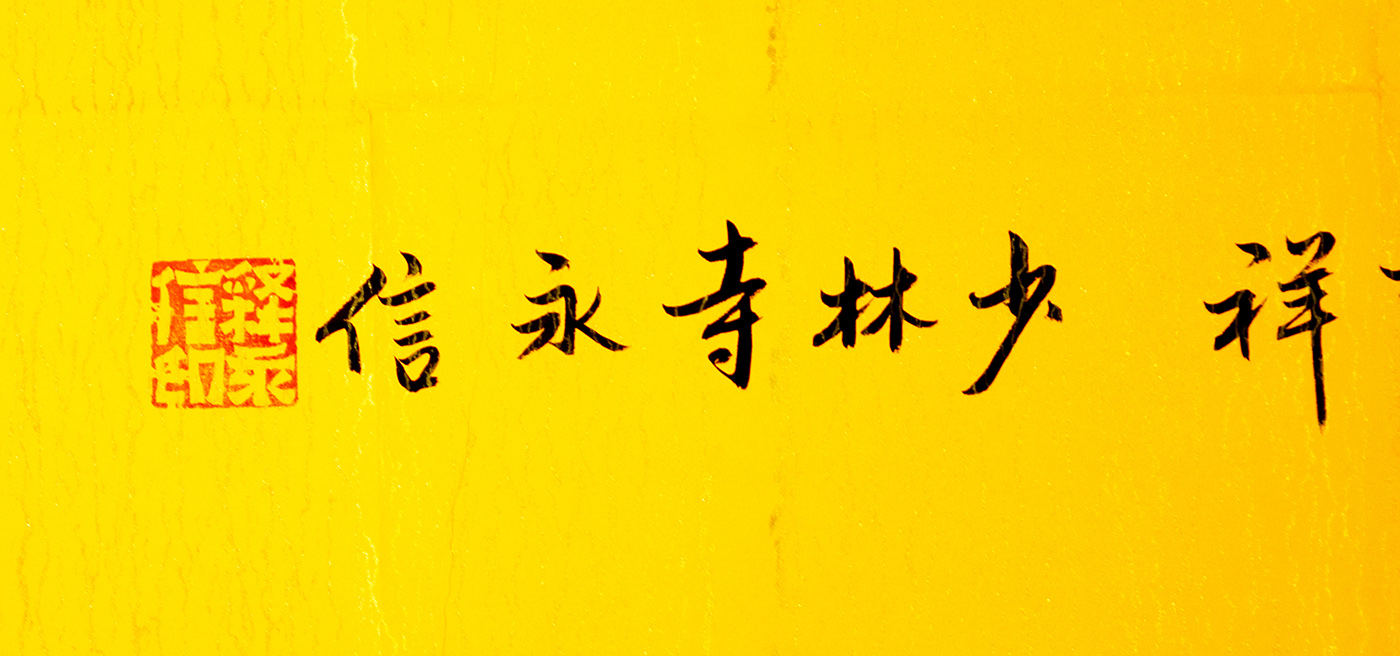 祥 少林寺永信
释永信印